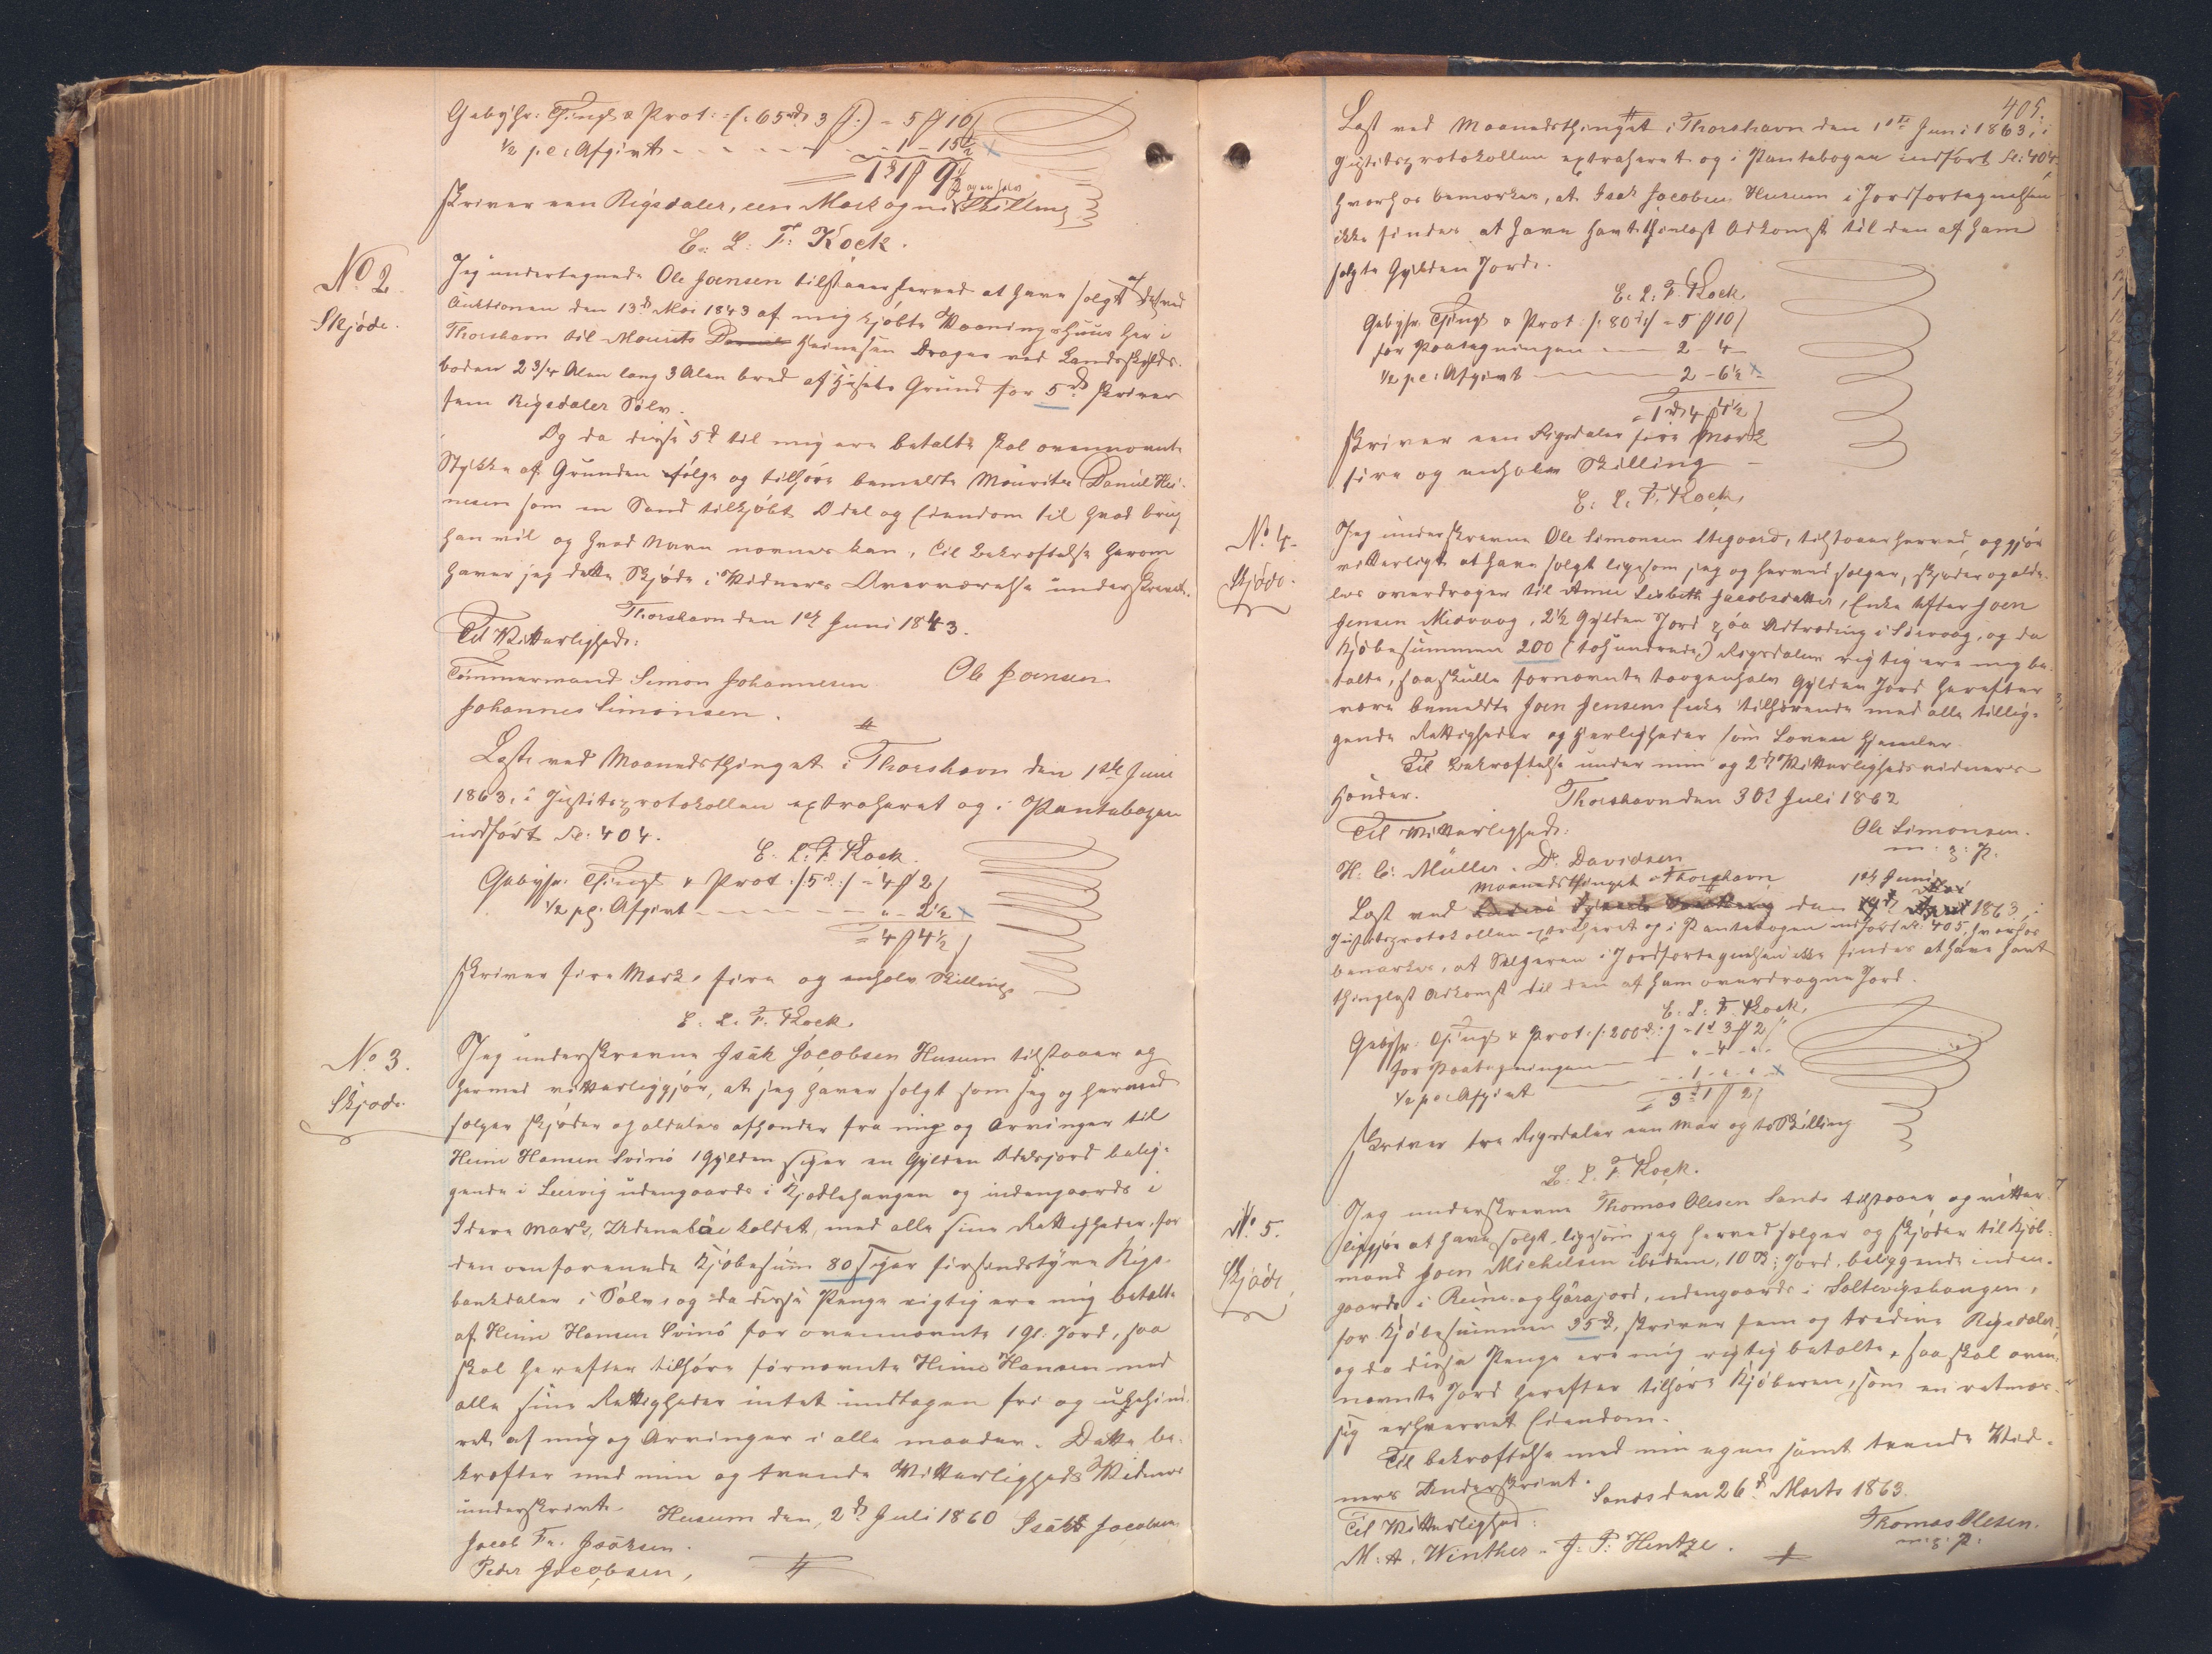 Gebyhr: Thingl & Prot: /: 65rd 3 ß :/ = 5 ß 10
½ pc: Afgivt - - - - - - - 1 - 15½
1rd 1 ß 9½
skriver een Rigsdaler, een Mark og ni og en halv Skilling
E. L. F. Kock.
No 2.
Skjöde.
Jeg undertegnede Ole Joensen tilstaaer herved at have solgt af det ved
Auktionen den 13d Mai 1843 af mig kjöbte Vaaningshuus her i
Thorshavn til Mourits Daniel Heinesen Dragen ved Landskylds-
boden 2 3/4 Alen lang 3 Alen bred af Husets Grund for 5rd skriver
fem Rigsdaler Sölv.
Og da disse 5rd til mig ere betalte skal ovennævnte
Stykke af Grunden fölge og tilhöre bemeldte Mourits Daniel Hei-
nesen som en Sand tilkjöbt Odel og Eiendom til hvad brug
han vil og hvad Navn nævnes kan, Til Bekræftelse herom
haver jeg dette Skjöde i Vidners Overværelse underskrevet.
Thorshavn den 1st Juni 1843.
Til Vitterlighed:
Tömmermand Simon Johannesen Ole Joensen
Johannes Simonsen.
Læst ved Maanedsthinget i Thorshavn den 1ste Juni
1863, i Justitsprotokollen extraheret og i Pantebogen
indfört Fl: 404.
E. L. F. Kock.
Gebyhr. Thingl & Prot. /: 5rd :/ = 4 ß 2
½ pC: Afgivt - - - - - - - „ - 2½
= 4 ß 4½
skriver fire Mark, fire og enhalv Skilling
E. L. F. Kock.
No 3.
Skjöde.
Jeg underskrevne Isak Jacobsen Husum tilstaaer og
hermed vitterliggjör, at jeg haver solgt som jeg og herved
sælger skjöder og aldeles afhænder fra mig og Arvinger til
Heine Hansen Svinö 1 Gylden siger en Gylden Odelsjord belig-
gende i Leervig udengaards i Kjodlehaugen og indengaards i
Idere Mark, Udenabäe kaldet, med alle sine Rettigheder, for
den omforenede Kjöbesum 80 siger firsindstyve Rigs-
bankdaler i Sölv, og da disse Penge rigtig ere mig betalte
af Heine Hansen Svinö for ovennævnte 1 Gl. Jord, saa
skal herefter tilhöre fornævnte Heine Hansen med
alle sine Rettigheder intet undtagen fri og ubehind-
ret af mig og Arvinger i alle maader. Dette be-
kræfter med min og tvende Vitterligheds Vidners
underskrivt. Husum den 2d Juli 1860 Isak Jacobsen
Jacob Fr. Isaksen.
Peder Jacobsen,
405.
Læst ved Maanedsthinget i Thorshavn den 1ste Juni 1863, i
Justitsprotokollen extraheret og i Pantebogen indfört Fl: 404
hvorhos bemærkes, at Isak Jacobsen Husum i Jordfortegnelsen
ikke findes at have havt thinglæst Adkomst til den af ham
solgte Gylden Jord.
E. L. F. Kock
Gebyhr. Thingl & Prot. /: 80rd :/ = 5 ß 10
for Paategningen - 2 - 4
½ pc: Afgivt - 2 - 6½
= 1rd 4 ß 4½
skriver een Rigsdaler fire Mark
fire og enhalv Skilling
E. L. F. Kock.
No 4.
Skjöde.
Jeg underskrevne Ole Simonsen Stegaard, tilstaaer herved, og gjör
vitterligt at have solgt ligesom jeg og herved sælger, skjöder og alde-
les overdrager til Anne Lisbeth Jacobsdatter, Enke efter Joen
Jensen Midvaag, 2½ Gylden Jord paa Udtræding i Sörvaag, og da
Kjöbesummen 200 (tohundrede) Rigsdaler rigtig ere mig be-
talte, saa skulle fornævnte toogenhalv Gylden Jord herefter
være bemeldte Joen Jensens Enke tilhörende med alle tillig-
gende Rettigheder og Herligheder som Loven hjemler.
Til Bekræftelse under min og 2de Vitterlighedsvidners
Hænder. Thorshavn den 30d Juli 1862
Til Vitterlighed: Ole Simonsen.
m. p. P.
H. C. Müller. D. Davidsen
Læst ved Maanedsthinget i Thorshavn den 1ste Juni 1863, i
Justitsprotokollen extraheret og i Pantebogen indfört Fl: 405, hvorhos
bemærkes, at Sælgeren i Jordfortegnelsen ikke findes at have havt
thinglæst Adkomst til den af ham overdragne Jord.
E. L. F. Kock,
Gebyhr: Thingl & Prot. /: 200rd :/ = 1rd 3 ß 2
for Paategningen - „ - 4 - „
½ pc: Afgivt - 1 - „ - „
= 3rd 1 ß 2
skriver tre Rigsdaler een Mark og to Skilling
E. L. F. Kock.
No 5.
Skjöde,
Jeg underskrevne Thomas Olesen Sands tilstaaer og vitter-
liggjör at have solgt, ligesom jeg herved sælger og skjöder til Kjöb-
mand Joen Michelsen ibidem, 10 Sk: Jord, beliggende inden-
gaards i Reine- og Garajord, udengaards i Saltevigshaugen,
for Kjöbesummen 35rd, skriver fem og tredive Rigsdaler,
og da disse Penge ere mig rigtig betalte, saa skal oven-
nævnte Jord herefter tilhöre Kjöberen, som en retmæs-
sig erhvervet Eiendom.
Til bekræftelse med min egen samt tvende Vid-
ners Underskrivt.
Sands den 26d Marts 1863.
Til Vitterlighed: Thomas Olesen.
m. p. P.
M. A. Winther. J. P. Hentze.